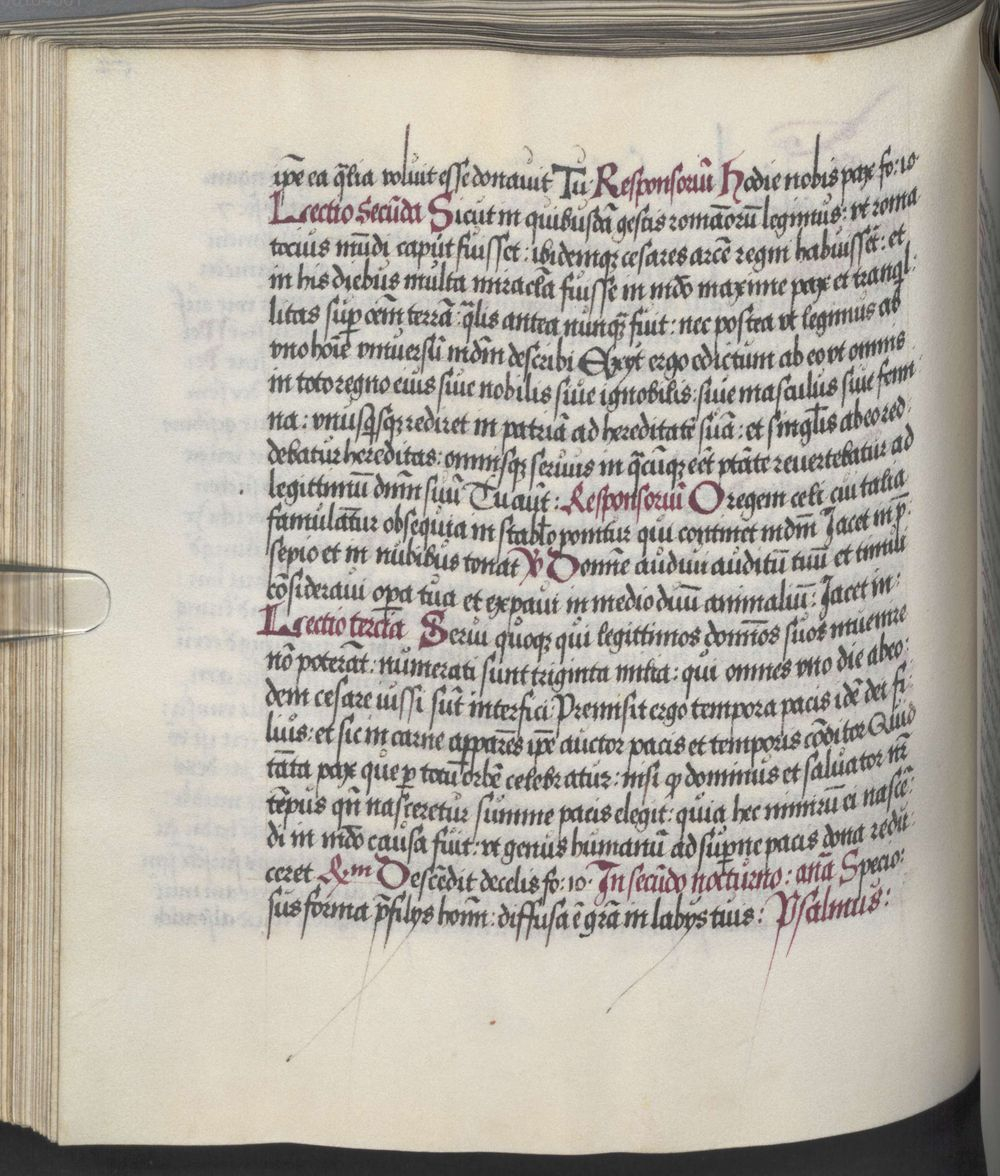 ip̄e ea q̄lia voluit esse donauit Tu Responsoriū Hodie nobis pax fo: 10
Lectio Secūda Sicut in quibusdā gestis romāorū legimus: vt roma
tocius mūdi caput fuisset: ibidemqꝫ cesares arcē regni habuissēt: et
in his diebus multa miracl̄a fuisse in mdō maxime pax et tranql̄:
litas sup̱ oēm terrā: q̄lis antea nunqꝫ fuit: nec postea vt legimus ab
vno hoīe vniuersū mdm̄ describi Exijt ergo edictum ab eo vt omnis
in toto regno eius siue nobilis siue ignobilis: siue masculus siue femi
na: vniusqsqꝫ rediret in patriā ad hereditatē suā: et singl̄is ab eo red:
debatur hereditas: omnisqꝫ seruus in q̄cūqꝫ eēt ptāte reuertebatur ad
legittimū dnm̄ suū Tu aūt: Responsoriū O regem celi cui talia
famulāt̄ur obsequia in stabl̄o ponitur qui continet mdm̄ Jacet in p̄:
sepio et in nubibus tonat V Domīe audiui auditū tuū et timui
cōsideraui op̱a tua et expaui in medio duū animaliū: Jacet in:
Lectio tercīa Serui quoqꝫ qui legittimos domīos suos inuenire
nō poterāt: numerati sunt triginta milia: qui omnes vno die ab eo:
dem cesare iussi sūt interfici Premisit ergo tempora pacis idē dei fi:
lius: et sic in carne apparēs ip̄e auctor pacis et temporis cōditor Quid
tāta pax que p̱ totū orbē celebratur: nisi ꝙ dominus et saluator nr̄
tēpus qn̄ nasceretur summe pacis elegit: quia hec nimirū ei nascē:
di in mdō causa fuit: vt genus humanū ad sup̱ne pacis dona redu:
ceret Rm Descēdit de celis fo: 10: In secūdo nocturno: anā Specio:
sus forma p̄ filijs hoīm: diffusa ē grā in labijs tuis: Psalmus: